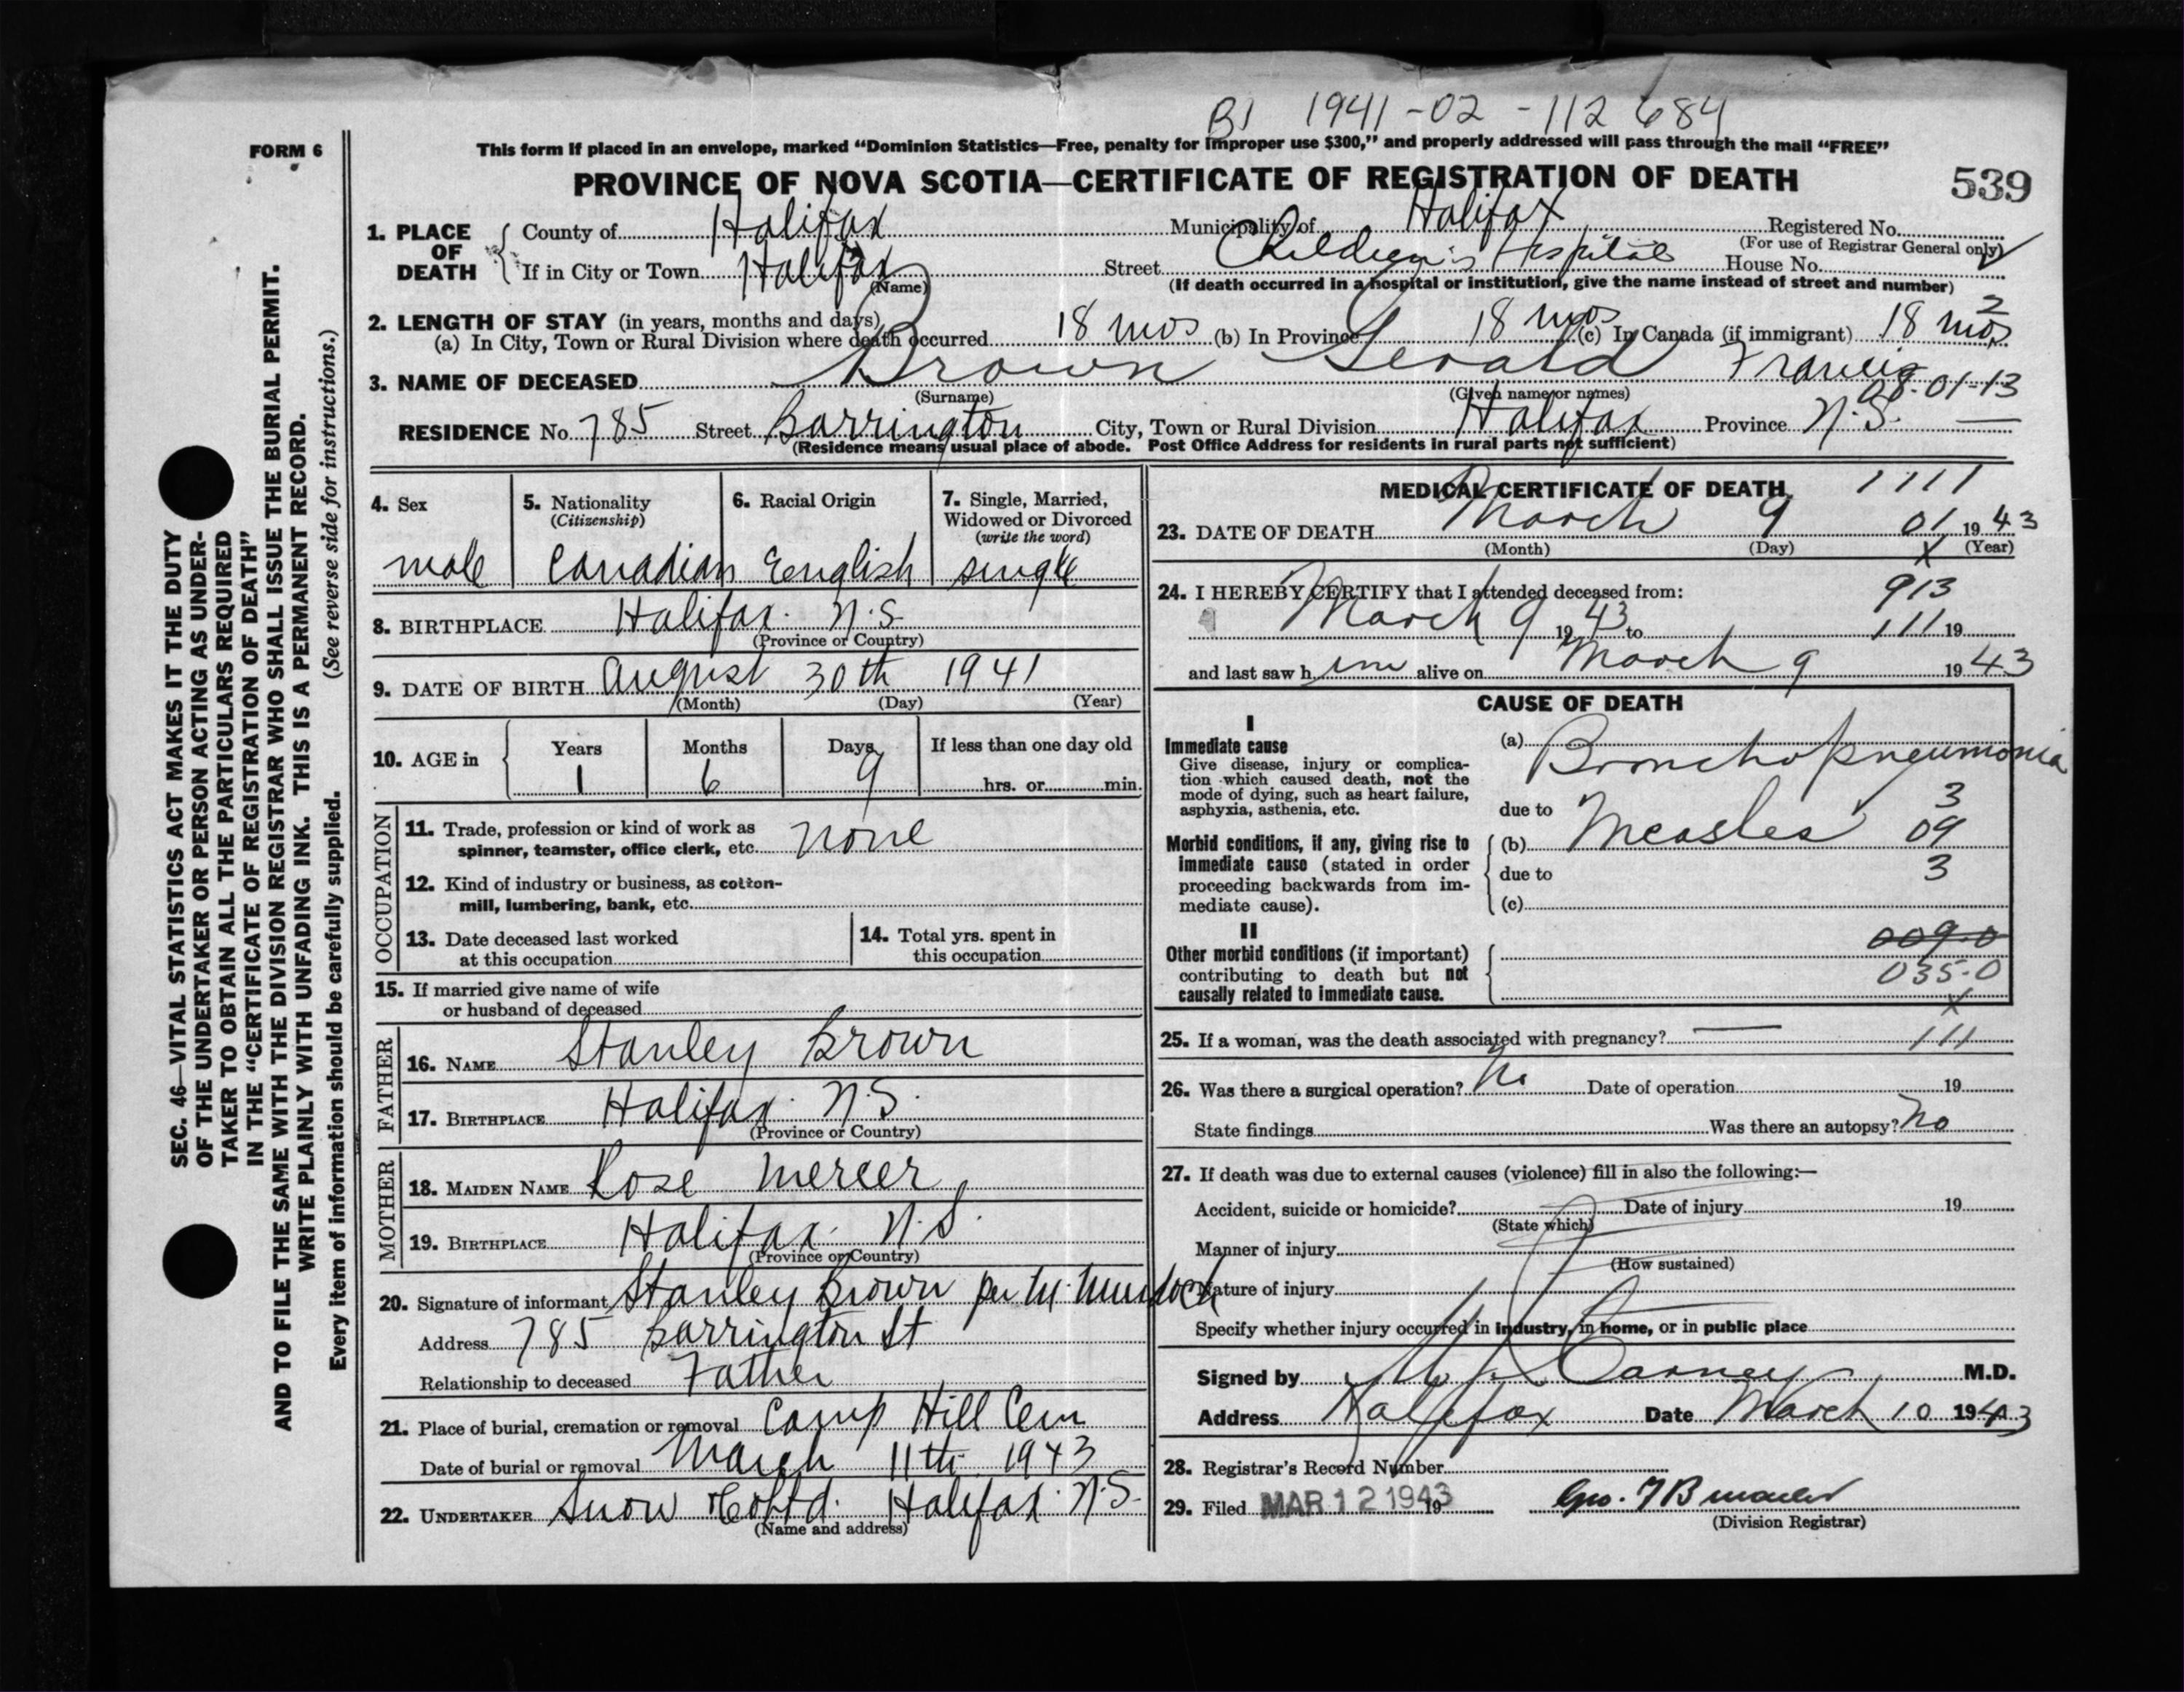 BJ 1941-02-112684
FORM 6
This form if placed in an envelope, marked “Dominion Statistics—Free, penalty for improper use $300,” and properly addressed will pass through the mail “FREE”
PROVINCE OF NOVA SCOTIA—CERTIFICATE OF REGISTRATION OF DEATH
539
1. PLACE OF DEATH
County of Halifax Municipality of Halifax Registered No.
(For use of Registrar General only)
If in City or Town Halifax Street Children's Hospital House No.
(Name) (If death occurred in a hospital or institution, give the name instead of street and number)
2. LENGTH OF STAY (in years, months and days)
2
(a) In City, Town or Rural Division where death occurred 18 mos (b) In Province 18 mos (c) In Canada (if immigrant) 18 mos
3. NAME OF DECEASED Brown Gerald Francis
(Surname) (Given name or names) 08-01-13
RESIDENCE No. 785 Street Barrington City, Town or Rural Division Halifax Province N.S.
(Residence means usual place of abode. Post Office Address for residents in rural parts not sufficient)
4. Sex
male
5. Nationality
(Citizenship)
Canadian
6. Racial Origin
English
7. Single, Married,
Widowed or Divorced
(write the word)
single
8. BIRTHPLACE Halifax. N.S.
(Province or Country)
9. DATE OF BIRTH August 30th 1941
(Month) (Day) (Year)
10. AGE in
Years Months Days If less than one day old
1 6 9 hrs. or min.
OCCUPATION
11. Trade, profession or kind of work as
spinner, teamster, office clerk, etc. none
12. Kind of industry or business, as cotton-
mill, lumbering, bank, etc.
13. Date deceased last worked
at this occupation
14. Total yrs. spent in
this occupation
15. If married give name of wife
or husband of deceased
FATHER
16. NAME Stanley Brown
17. BIRTHPLACE Halifax. N.S.
(Province or Country)
MOTHER
18. MAIDEN NAME Rose Mercer
19. BIRTHPLACE Halifax. N.S.
(Province or Country)
20. Signature of informant Stanley Brown per M. Murdock
Address 785 Barrington St
Relationship to deceased Father
21. Place of burial, cremation or removal Camp Hill Cem
Date of burial or removal March 11th 1943
22. UNDERTAKER Snow & Co Ltd. Halifax. N.S.
(Name and address)
MEDICAL CERTIFICATE OF DEATH
1111
23. DATE OF DEATH March 9 01 1943
(Month) (Day) X (Year)
24. I HEREBY CERTIFY that I attended deceased from:
913
March 9 1943 to 111 19
and last saw him alive on March 9 1943
CAUSE OF DEATH
I
Immediate cause
Give disease, injury or complica-
tion which caused death, not the
mode of dying, such as heart failure,
asphyxia, asthenia, etc.
(a) Bronchopneumonia
due to 3
Morbid conditions, if any, giving rise to
immediate cause (stated in order
proceeding backwards from im-
mediate cause).
(b) Measles 09
due to 3
(c)
II
Other morbid conditions (if important)
contributing to death but not
causally related to immediate cause.
009.0
035.0
X
25. If a woman, was the death associated with pregnancy? — 111
26. Was there a surgical operation? No Date of operation 19
State findings Was there an autopsy? No
27. If death was due to external causes (violence) fill in also the following:—
Accident, suicide or homicide? Date of injury 19
(State which)
Manner of injury
(How sustained)
Nature of injury
Specify whether injury occurred in industry, in home, or in public place
Signed by Carney M.D.
Address Halifax Date March 10 1943
28. Registrar's Record Number
29. Filed MAR 12 1943 19
(Division Registrar)
SEC. 46—VITAL STATISTICS ACT MAKES IT THE DUTY
OF THE UNDERTAKER OR PERSON ACTING AS UNDER-
TAKER TO OBTAIN ALL THE PARTICULARS REQUIRED
IN THE “CERTIFICATE OF REGISTRATION OF DEATH”
AND TO FILE THE SAME WITH THE DIVISION REGISTRAR WHO SHALL ISSUE THE BURIAL PERMIT.
WRITE PLAINLY WITH UNFADING INK. THIS IS A PERMANENT RECORD.
Every item of information should be carefully supplied. (See reverse side for instructions.)